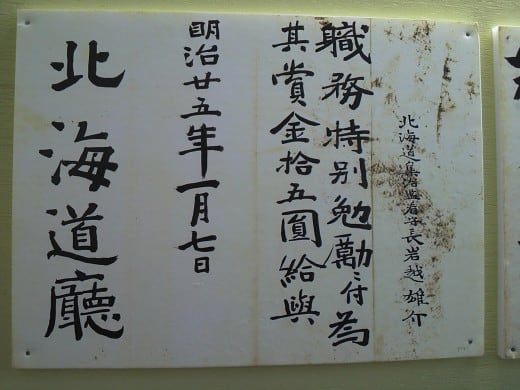 北海道集治監看守長岩越雄介
職務特別勉勵ニ付為
其賞金拾五圓給與
明治廿五年一月七日
北海道廳